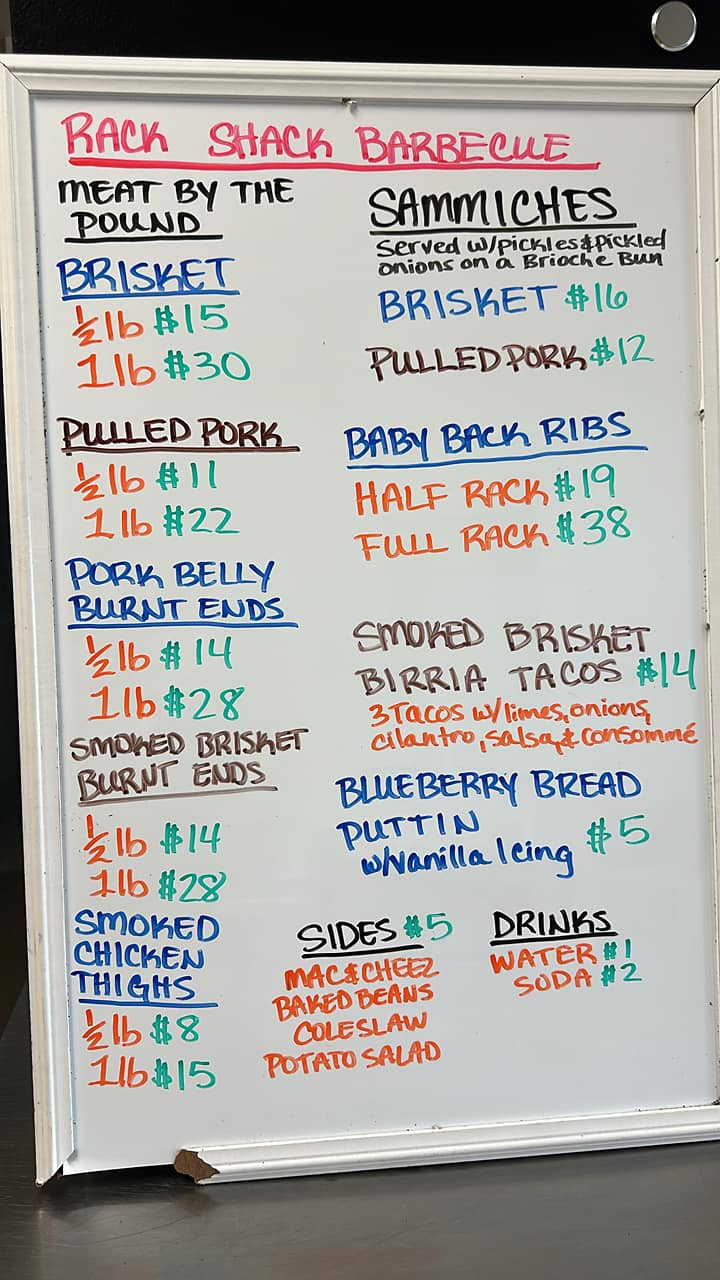 RACK SHACK BARBECUE
MEAT BY THE
POUND
BRISKET
½ lb $15
1 lb $30
PULLED PORK
½ lb $11
1 lb $22
PORK BELLY
BURNT ENDS
½ lb $14
1 lb $28
SMOKED BRISKET
BURNT ENDS
½ lb $14
1 lb $28
SMOKED
CHICKEN
THIGHS
½ lb $8
1 lb $15
SAMMICHES
Served w/pickles & Pickled
onions on a Brioche Bun
BRISKET $16
PULLED PORK $12
BABY BACK RIBS
HALF RACK $19
FULL RACK $38
SMOKED BRISKET
BIRRIA TACOS $14
3 Tacos w/limes, onions,
cilantro, salsa, & consommé
BLUEBERRY BREAD
PUTTIN
w/Vanilla Icing $5
SIDES $5
MAC & CHEEZ
BAKED BEANS
COLESLAW
POTATO SALAD
DRINKS
WATER $1
SODA $2